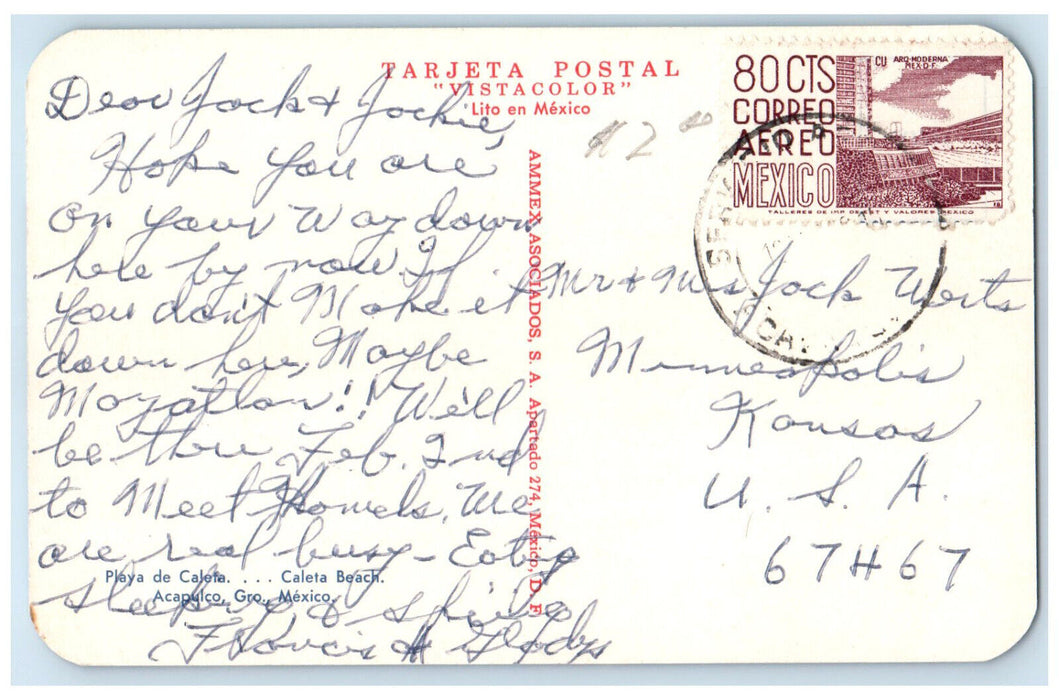 TARJETA POSTAL
"VISTACOLOR"
Lito en México
Dear Jack & Jackie,
Hope you are
on your way down
here by now. If
you don't make it
down here, Maybe
Mazatlan!! We'll
be there Feb. 2nd
to Meet Howels. We
are real busy - Eating
sleeping &
Francis & Gladys
Playa de Caleta. . . . Caleta Beach.
Acapulco, Gro., México.
AMMEX ASOCIADOS, S. A. Apartado 274, México, D. F.
80 CTS
CORREO
AEREO
MEXICO
CU ARQ-MODERNA
MEX-D-F.
TALLERES DE IMP DE EST Y VALORES-MEXICO
Mr & Mrs Jack Werts
Minneapolis
Kansas
U. S. A.
67467